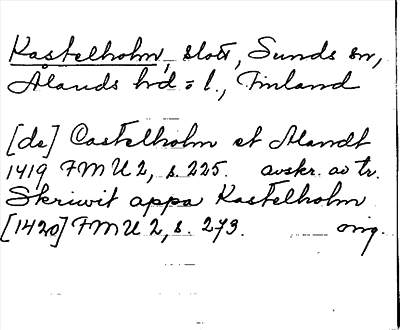 Kastelholm, slott, Sunds sn,
Ålands hd o l., Finland
[de] Castelholm et Alandt
1419 FMU 2, s. 225. avskr. av tr.
Skriwit appa Kastelholm
[1420] FMU 2, s. 273. orig.